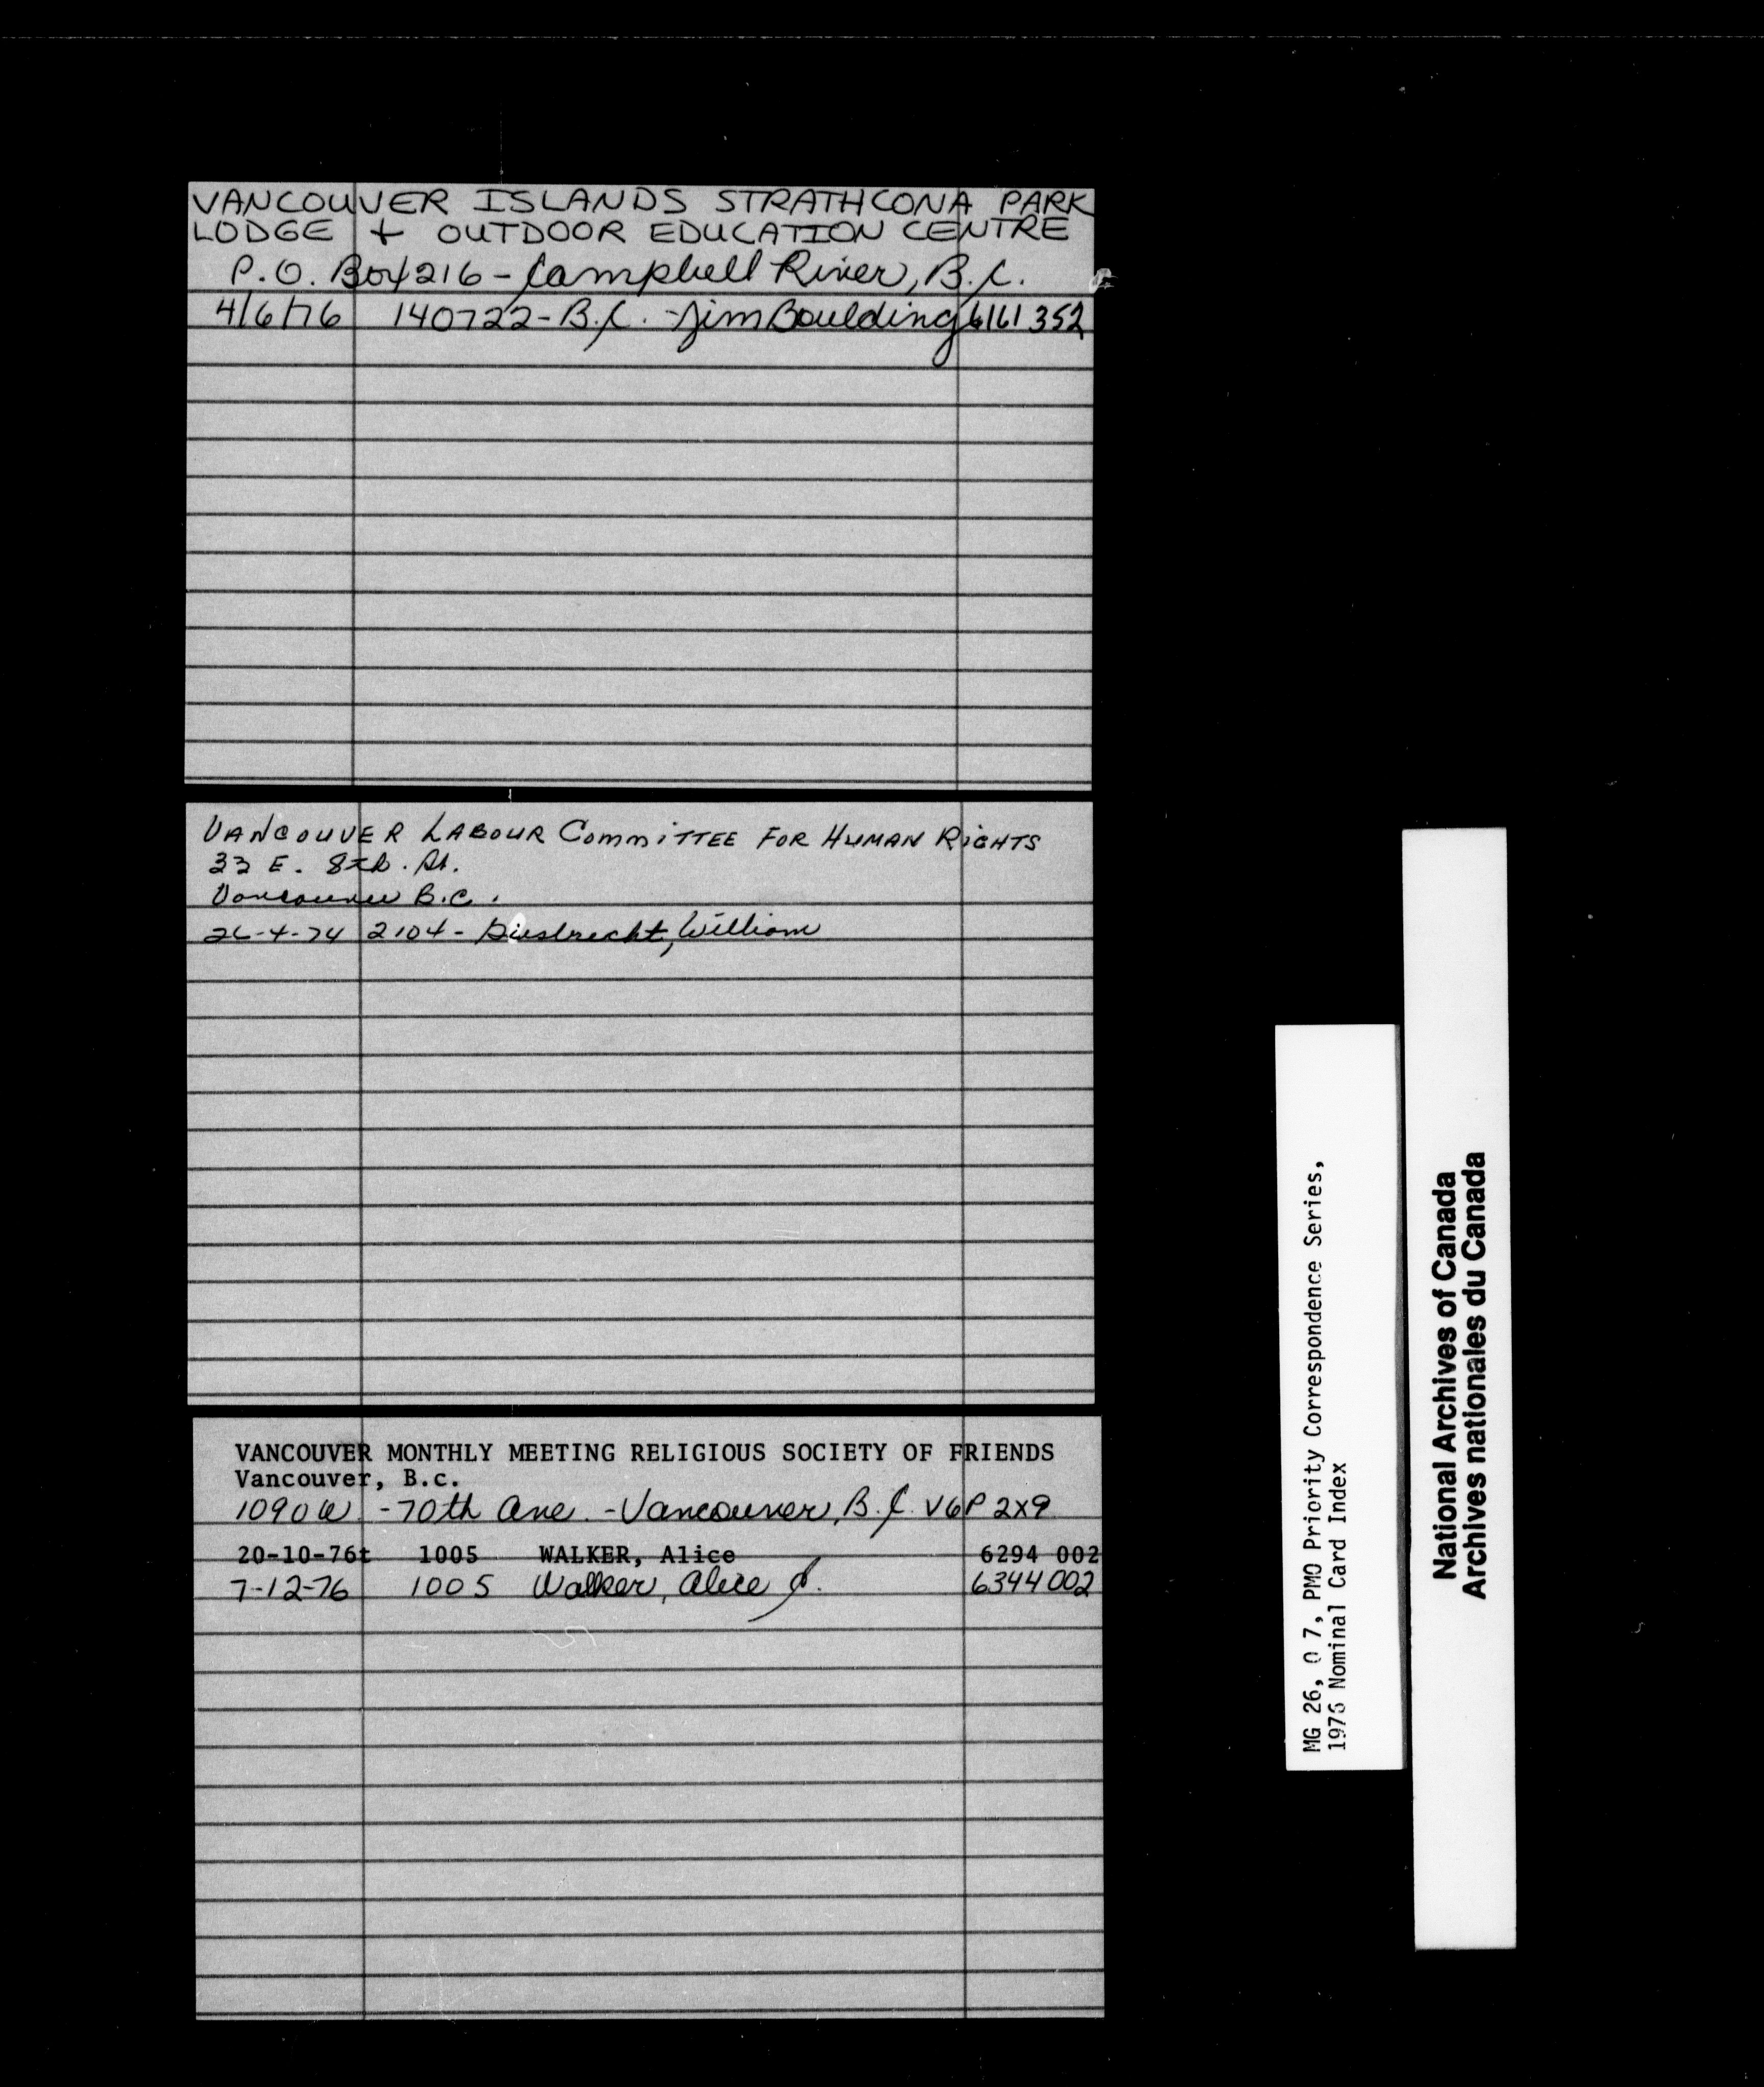 VANCOUVER ISLANDS STRATHCONA PARK
LODGE + OUTDOOR EDUCATION CENTRE
P.O. Box 216 - Campbell River, B.C.
4/6/76 140722 - B.C. - Jim Boulding 6161 352
VANCOUVER LABOUR COMMITTEE FOR HUMAN RIGHTS
33 E. 8th. St.
Vancouver B.C.
26-4-74 2104 - William
VANCOUVER MONTHLY MEETING RELIGIOUS SOCIETY OF FRIENDS
Vancouver, B.c.
1090 W. - 70th Ave. - Vancouver, B.C. V6P 2X9
20-10-76t 1005 WALKER, Alice 6294 002
7-12-76 1005 Walker, Alice J. 6344 002
MG 26, O 7, PMO Priority Correspondence Series,
1976 Nominal Card Index
National Archives of Canada
Archives nationales du Canada